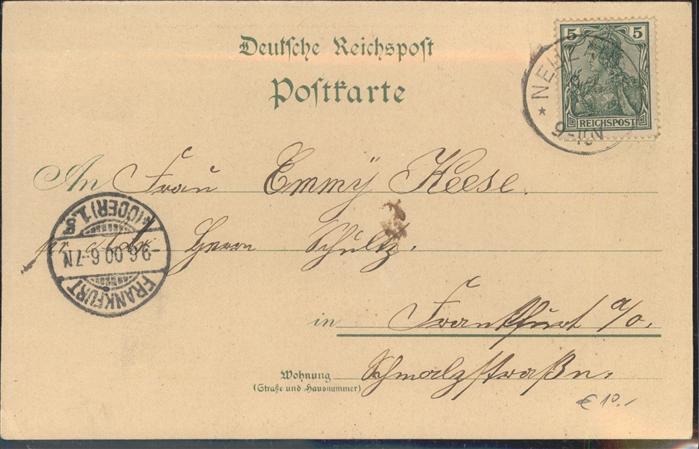 Deutsche Reichspost
Postkarte
5 5
REICHSPOST
* NE
9-
An Frau Emmy Keese.
pr. Herrn Schultz.
in Frankfurt a/o.
Wohnung Schmalzstraße.
(Straße und Hausnummer)
FRANKFURT (ODER) 1.
-9.6.00.6-7N
€ 10.-